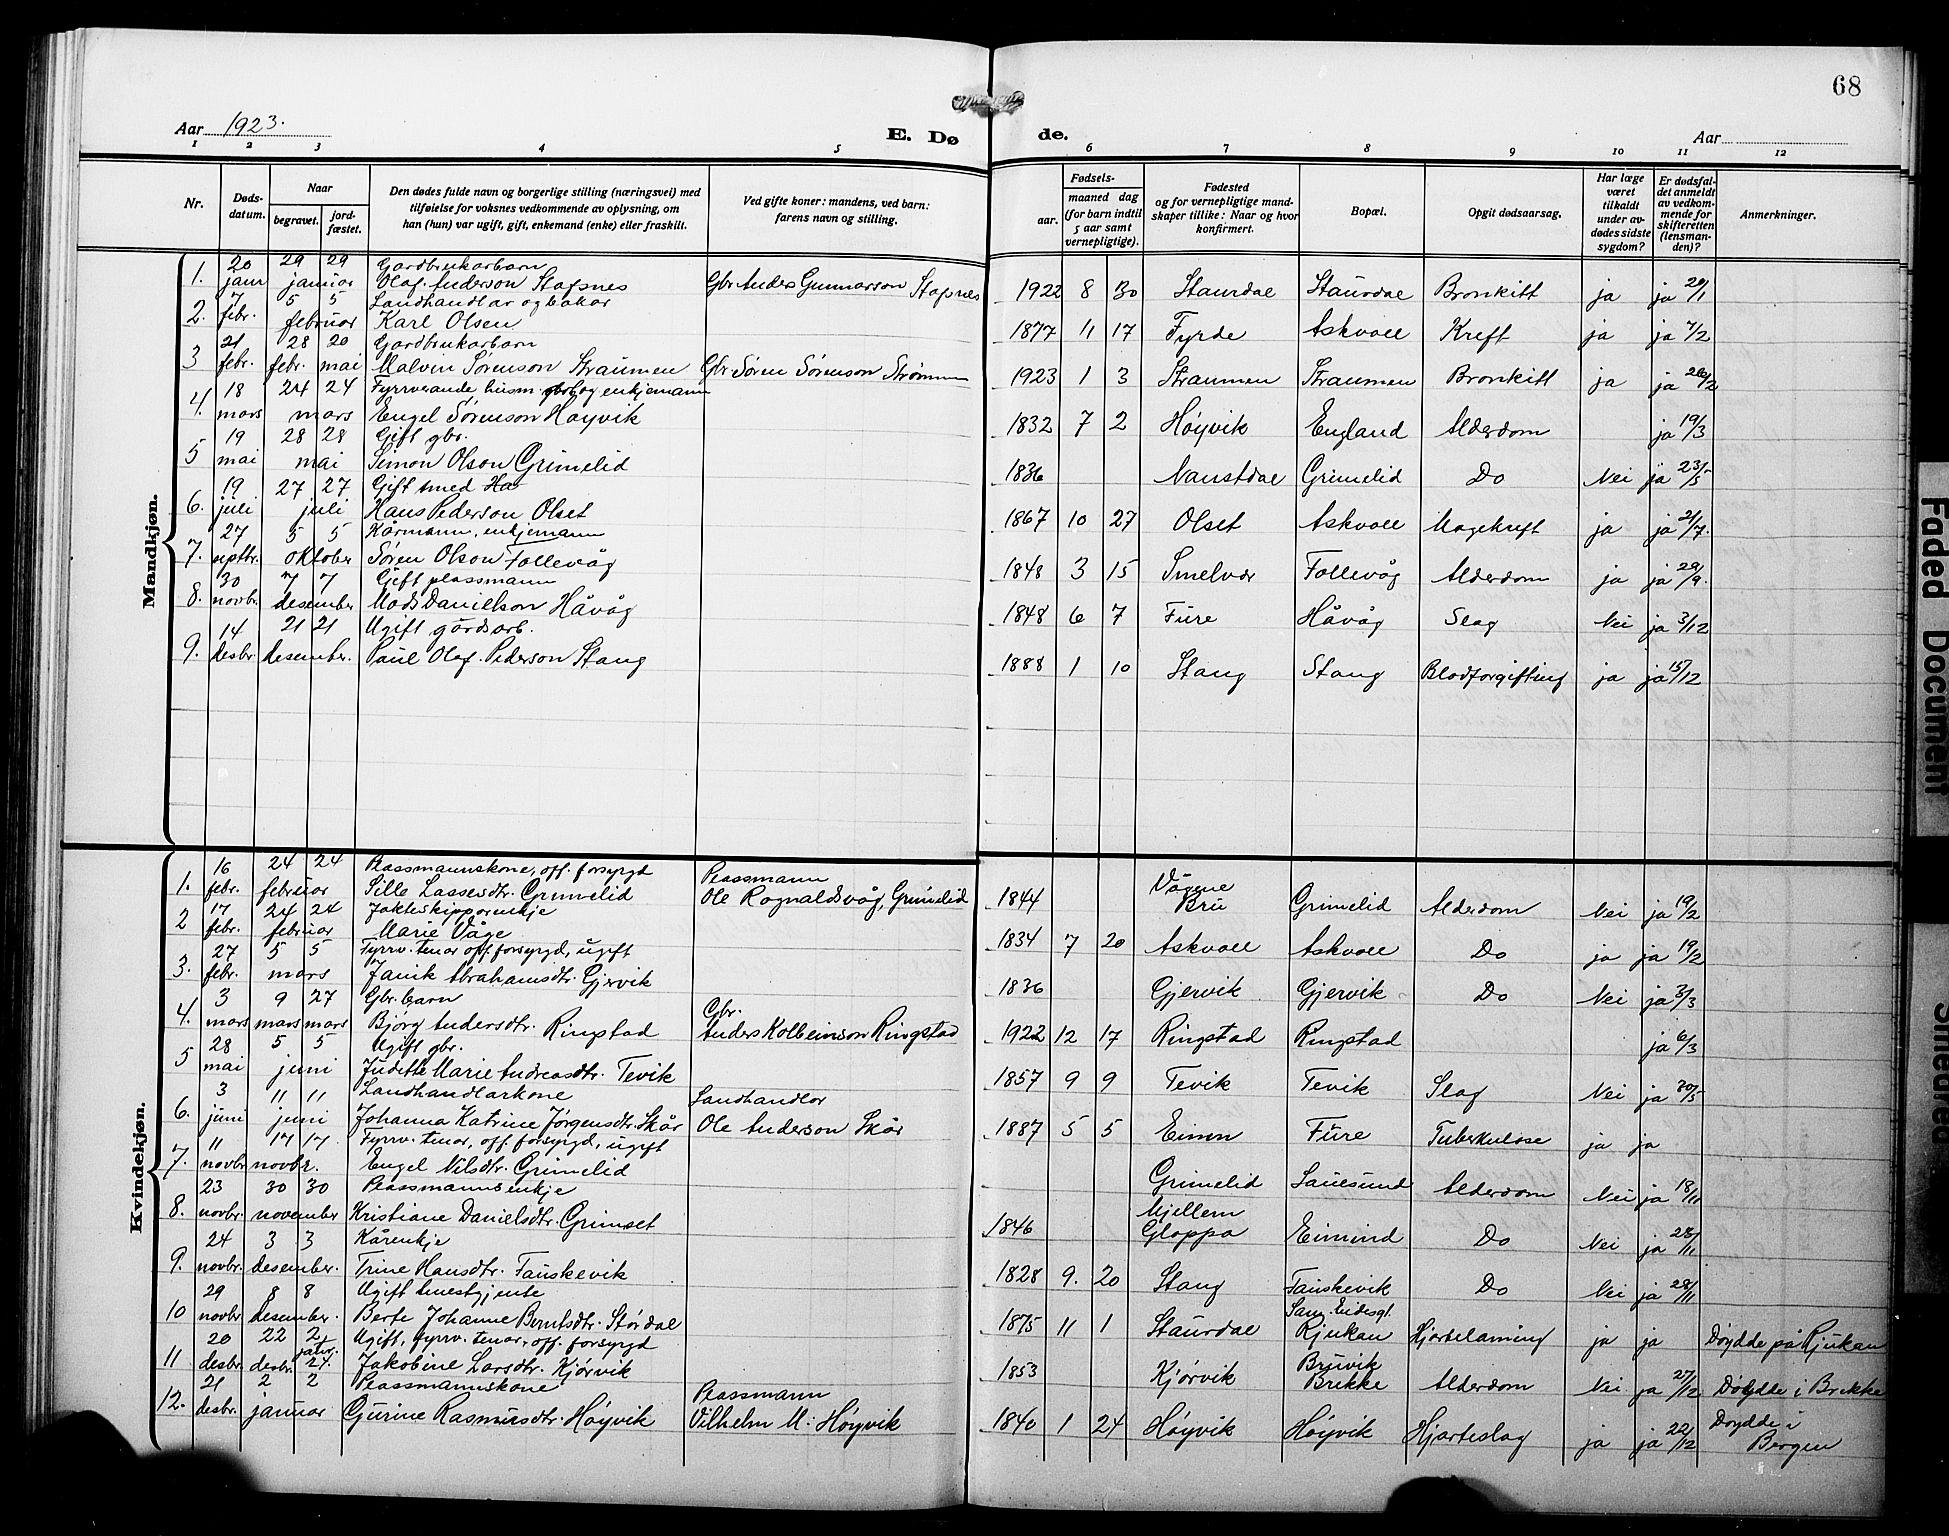 68
Aar 1923. E. Dø de. Aar
1 2 3 4 5 6 7 8 9 10 11 12
Nr.
Døds-datum.
Naar
begravet.
jord-fæstet.
Den dødes fulde navn og borgerlige stilling (næringsvei) med
tilføielse for voksnes vedkommende av oplysning, om
han (hun) var ugift, gift, enkemand (enke) eller fraskilt.
Ved gifte koner: mandens, ved barn:
farens navn og stilling.
Fødsels-
aar. maaned dag
(for barn indtil
5 aar samt
vernepligtige).
Fødested
og for vernepligtige mand-
skaper tillike: Naar og hvor
konfirmert.
Bopæl.
Opgit dødsaarsag.
Har læge
været
tilkaldt
under av-
dødes sidste
sygdom?
Er dødsfal-
det anmeldt
av vedkom-
mende for
skifteretten
(lensman-
den)?
Anmerkninger.
Mandkjøn.
20 29 29 Gardbrukarbarn
1. jann januar Olaf Anderson Stafsnes Gbr. Anders Gunnarson Stafsnes 1922 8 30 Staurdal Staurdal Bronkitt ja ja 20/1
7 5 5 Landhandlar og bakar
2. febr. februar Karl Olsen 1877 11 17 Fyrde Askvoll Kreft ja ja 7/2
21 28 20 Gardbrukarbarn
3 febr. febr. mai Malvin Sørenson Straumen Gbr. Søren Sørenson Strømmen 1923 1 3 Straumen Straumen Bronkitt ja ja 26/2
18 24 24 Fyrrverande husm. og enkjemann
4. mars mars Engel Sørenson Høyvik 1832 7 2 Høyvik England Alderdom ja 19/3
19 28 28 Gift gbr.
5 mai mai Simon Olson Grimelid 1836 Naustdal Grimelid Do Nei ja 23/5
19 27 27 Gift smed Ha
6. juli juli Hans Pederson Olset 1867 10 27 Olset Askvoll Magekreft ja ja 21/7.
27 5 5 Kårmann, enkjemann
7. septbr. oktober Søren Olson Follevåg 1848 3 15 Smelvær Follevåg Alderdom ja ja 29/9.
30 7 7 Gift plassmann
8. novbr. desember Mads Danielson Håvåg 1848 6 7 Fure Håvåg Slag Nei ja 3/12
14 21 21 Ugift gårdsarb.
9. desbr. desember. Paul Olaf Pederson Stang 1888 1 10 Stang Stang Blodforgifting ja ja 15/12
Kvindekjøn.
16 24 24 Plassmannskone, off. forsyrgd Plassmann Vågene
1. febr. februar Sille Lassesdtr. Grimelid Ole Rognaldsvåg, Grimelid 1844 Bru Grimelid Alderdom Nei ja 19/2
17 24 24 Jakteskipparenkje
2 febr. februar Marie Våge 1834 7 20 Askvoll Askvoll Do ja ja 19/2
27 5 5 Fyrrv. tenar off. forsyrgd, ugift
3. febr. mars Janik Abrahamsdtr. Gjervik 1836 Gjervik Gjervik Do Nei ja 3/3
3 9 27 Gbr. barn Gbr.
4. mars mars mars Bjørg Andersdtr. Ringstad Anders Kolbeinson Ringstad 1922 12 17 Ringstad Ringstad ja 6/3
28 5 5 Ugift gbr.
5 mai juni Judithe Marie Andreasdtr. Tevik 1857 9 9 Tevik Tevik Slag Nei ja 30/5
3 11 11 Landhandlarkone Landhandlar
6. juni juni Johanna Katrine Jørgensdtr. Skår Ole Anderson Skår 1887 5 5 Einen Fure Tuberkulose ja ja
11 17 17 Fyrrv. tenar, off. forsyrgd, ugift
7. novbr novbr. Engel Nilsdtr. Grimelid Grimelid Sauesund Alderdom Nei ja 18/11
23 30 30 Plassmannsenkje Mjellem
8. novbr. november Kristiane Danielsdtr. Grimset 1846 Gloppa Eimind Do Nei ja 28/11
24 3 3 Kårenkje
9. novbr. desember. Trine Hansdtr. Fauskevik 1828 9. 20 Stang Fauskevik Do Nei ja 28/11
29 8 8 Ugift tenestgjente
10 novbr desember. Berte Johanne Berntsdtr. Stórdal 1875 11 1 Staurdal Rjukan Hjartelaming ja ja Døydde på Rjukan
20 22 2 Ugift, fyrrv. tenar, off. forsyrgd Bruvik
11 desbr. desbr. janr. 24. Jakobine Larsdtr. Kjørvik 1853 Kjørvik Brekke Alderdom Nei ja 27/12 Døydde i Brekke
21 2 2 Plassmannskone Plassmann Døydde i
12. desbr. januar Gurine Rasmusdtr. Høyvik Vilhelm M: Høyvik 1840 1 24 Høyvik Høyvik Hjarteslag ja ja 22/12 Bergen
Faded Document
Smeared